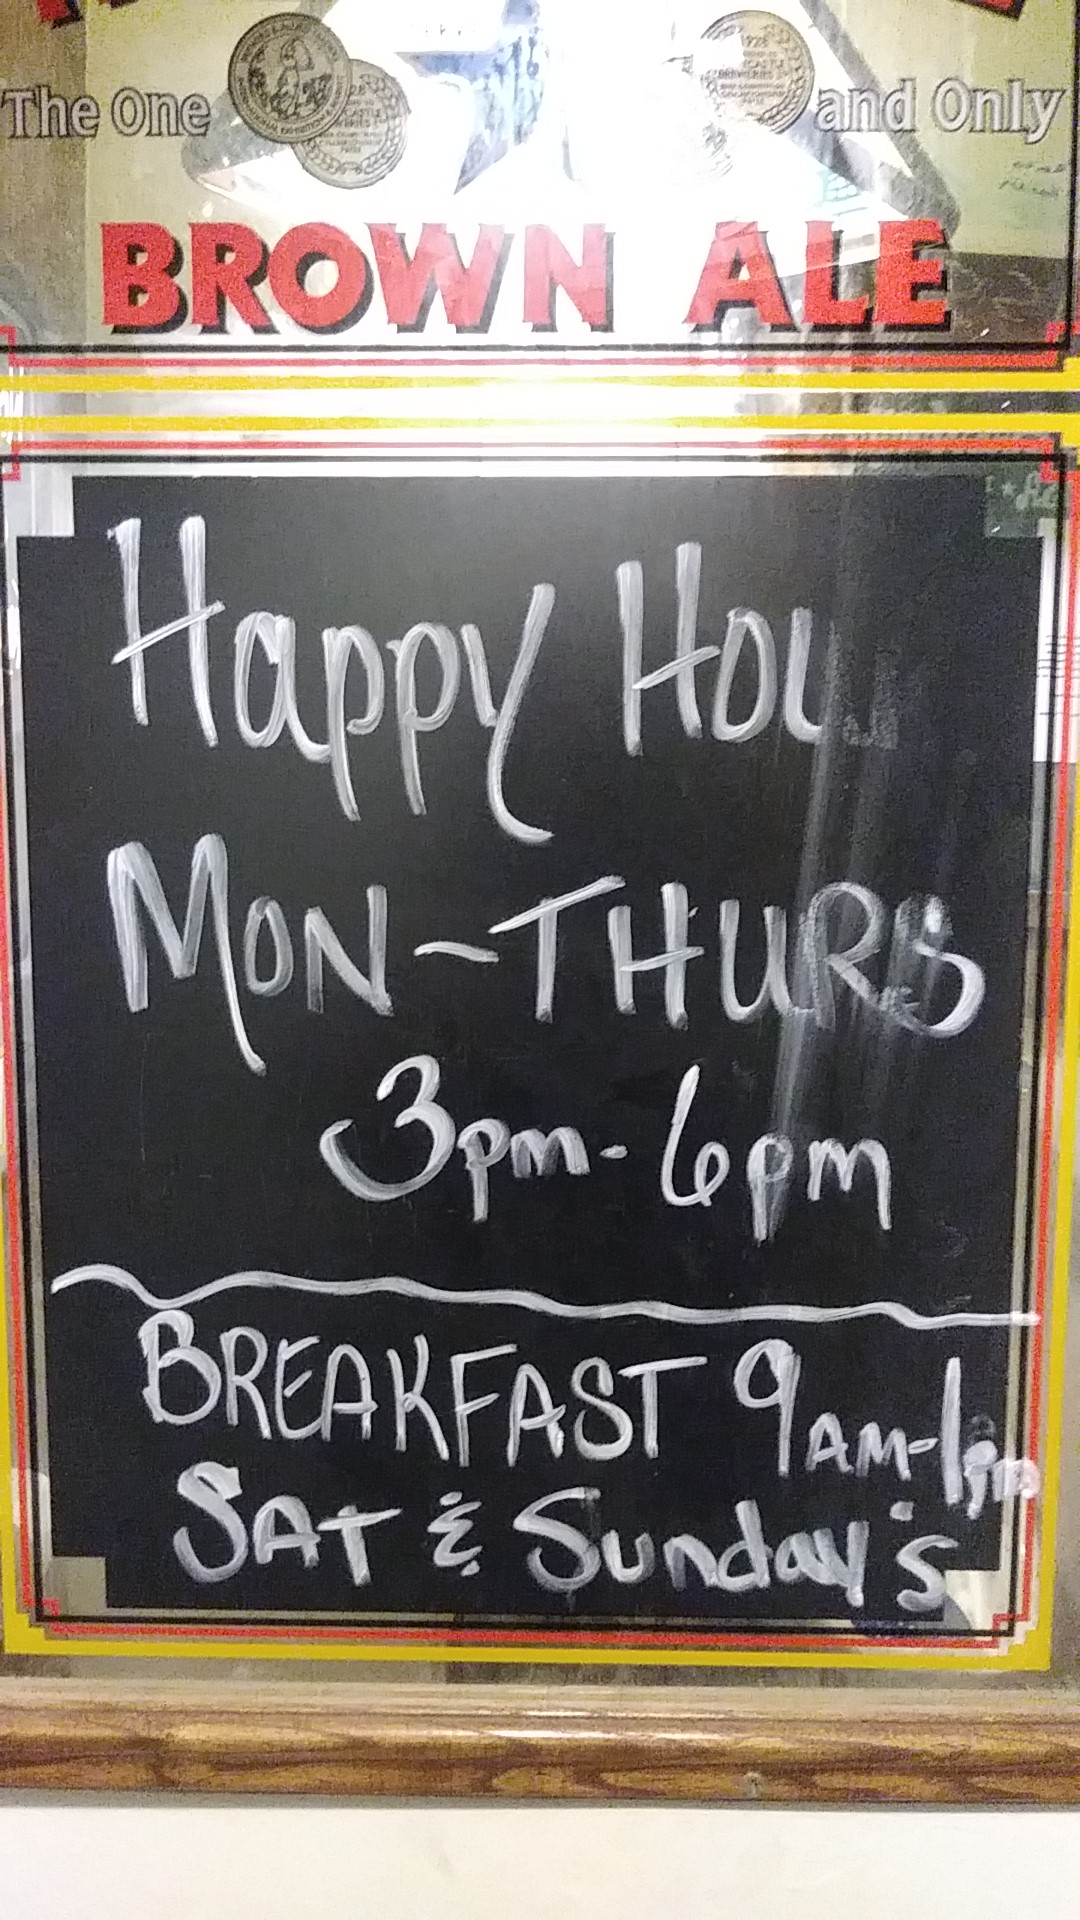 The One and Only
BROWN ALE
Happy Hou
MON-THURS
3pm-6pm
BREAKFAST 9AM-1pm
SAT & Sunday's